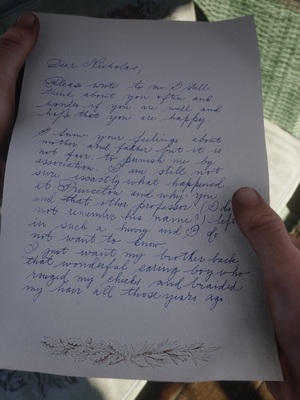 Dear Nicholas,
Please write to me I still
think about you often and
wonder if you are well and
hope that you are happy
I know your feelings about
mother and father but it is
not fair to punish me by
association. I am still not
sure exactly what happened
at Princeton and why you
and that other professor (I do
not remember his name!) left
in such a hurry and I do
not want to know
I just want my brother back
that wonderful caring boy who
rouged my cheeks and braided
my hair all those years ago